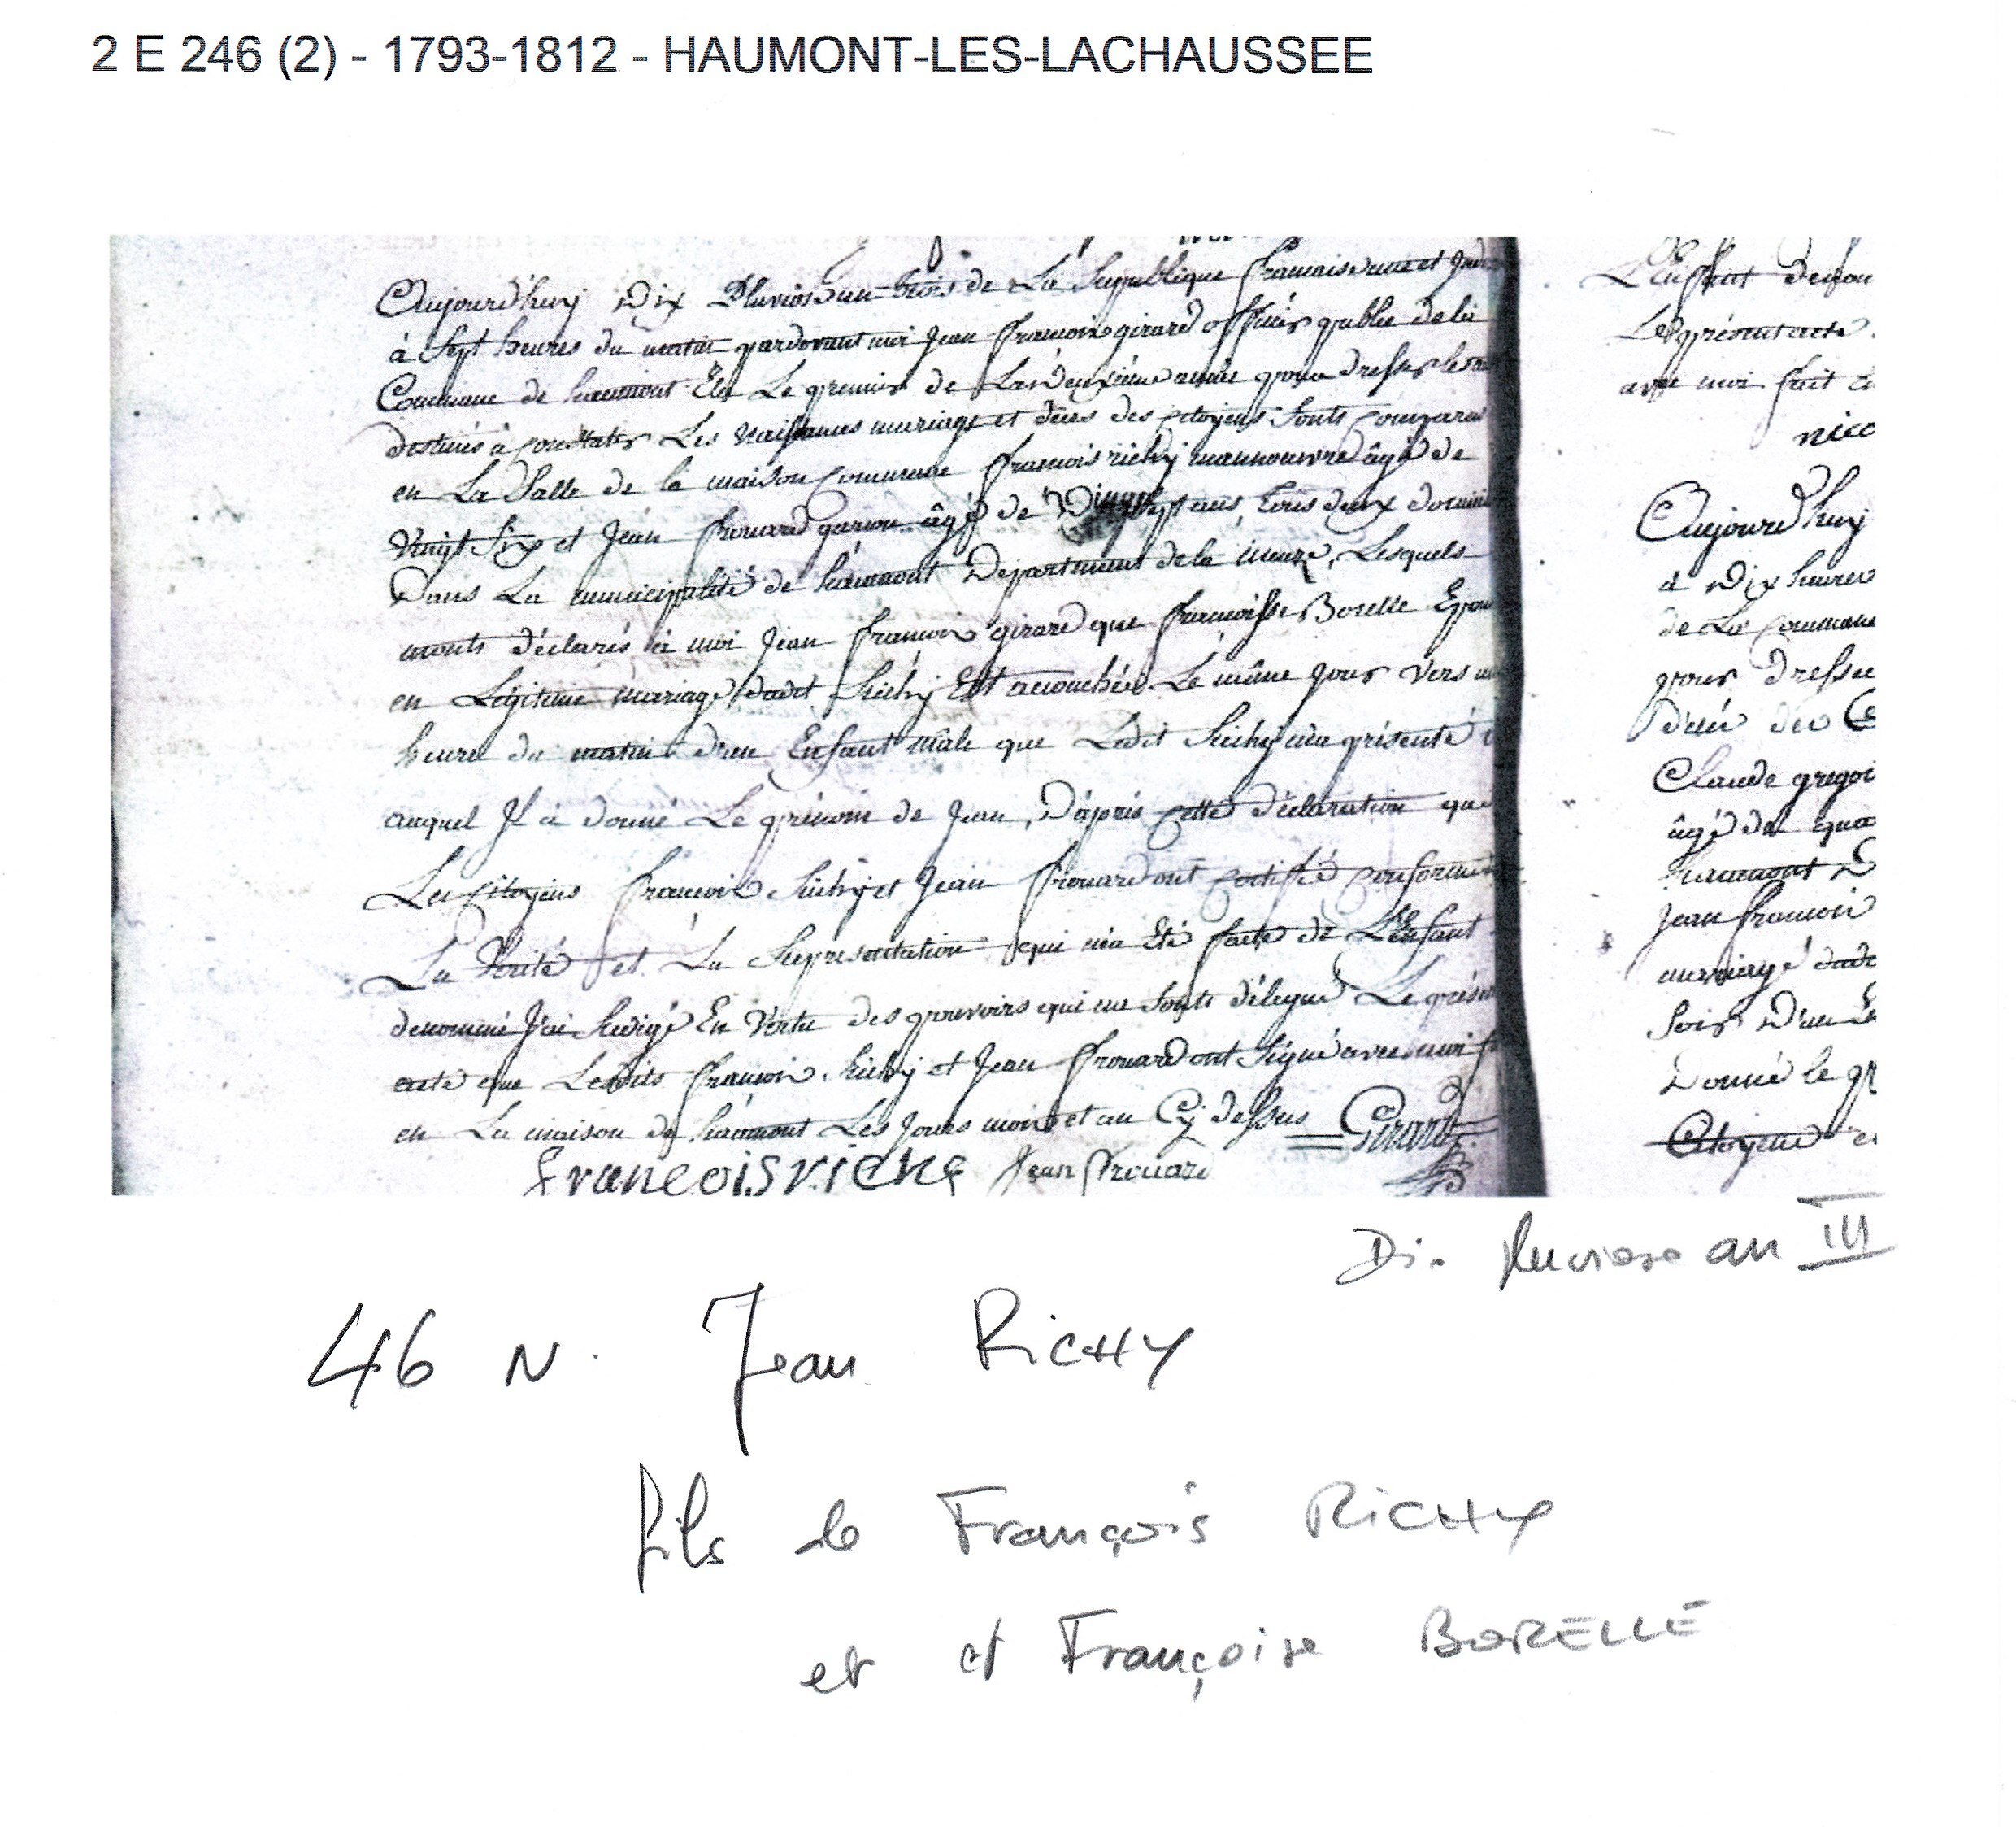 2 E 246 (2) - 1793-1812 - HAUMONT-LES-LACHAUSSEE
Aujourd'huy Dix Pluviose an trois de La Republique francaise une et
à Sept heures du matin pardevant moi Jean francois girard officier public de la
Commune de haumont Elu Le premier de La deuxieme année pour dresser les
destinés à constater Les Naissances mariage et déces des citoyens Sonts comparus
en La Salle de la maison commune francois richy mannouvre âgé de
Vingt Six et Jean frouard garçon âgé de Vingt Sept ans, tous deux
Dans La municipalité de haumont Département de la meuse, Lesquels
monts déclarés à moi Jean francois girard que francoisse Borelle
en Légitime mariage dudit Richy Est accouchée Le même jour vers
heure du matin d'un Enfant male que Ledit Richy m'a présenté
auquel Il a donné Le prénom de Jean, D'après cette déclaration que
Les citoyens francois Richy et Jean frouard ont certifié
La Vérité et La Représentation qui m'a Eté faite de L'Enfant
denommé J'ai Redigé En Vertu des pouvoirs qui me Sonts délégué Le
acte que Lesdits francois Richy et Jean frouard ont Signé avec moi
en La maison de haumont Les Jours mois et an Cy dessus Girard
francois riche Jean frouard
L'Enfant
Le présent acte
avec moi fait
Aujourd'huy
à Dix heures
de La commune
pour
Claude
âgé de
haumont
Jean francois
mariage
soir D'un
Donné le
Citoyens
Dix Pluviose an III
46 N. Jean RICHY
fils de François RICHY
et d Françoise BORELLE